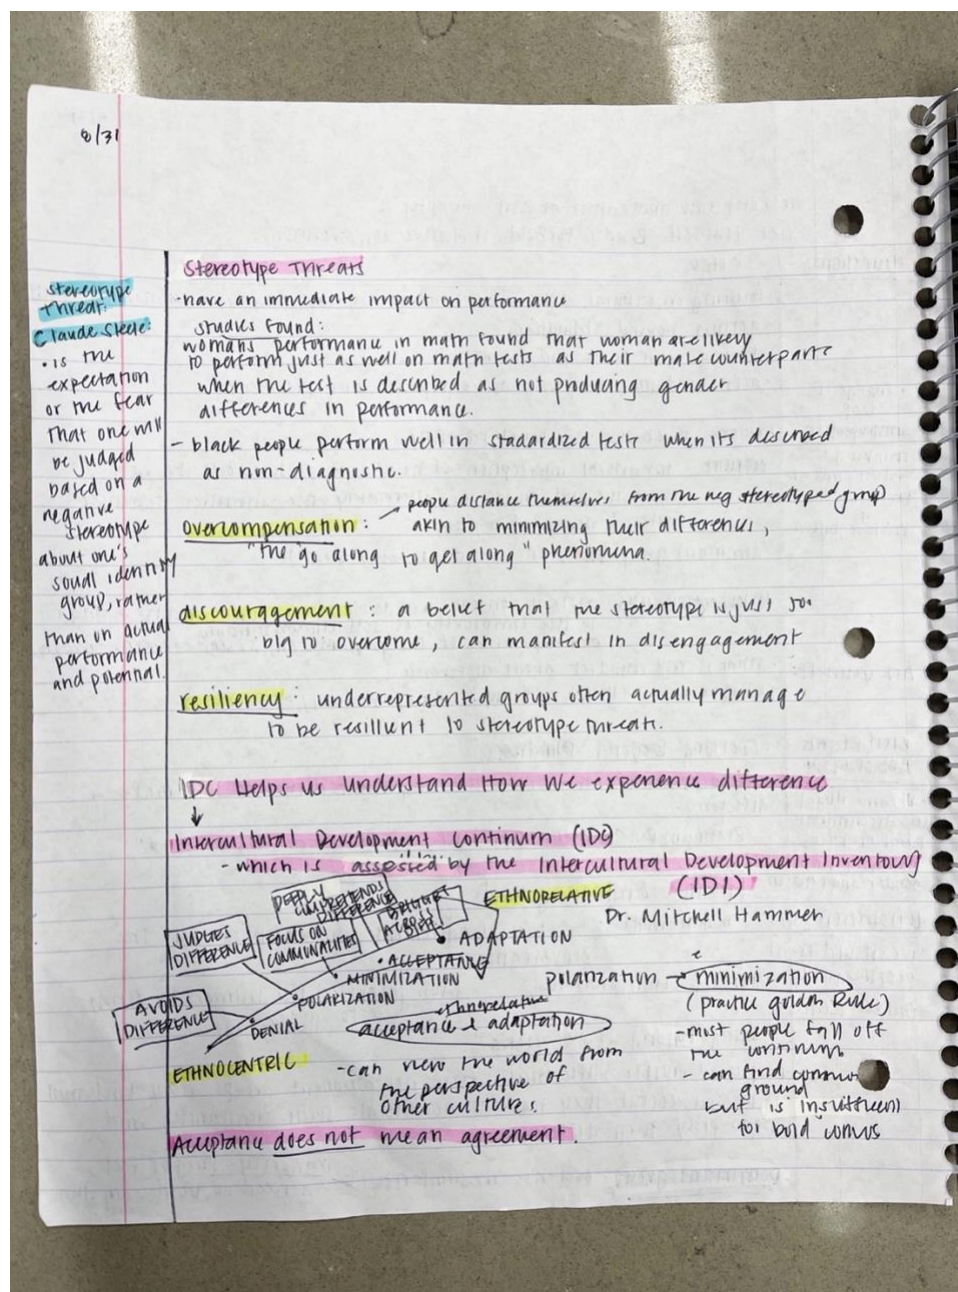 8/31
Stereotype
Threat:
Claude Steele:
• is the
expectation
or the fear
that one will
be judged
based on a
negative
stereotype
about one's
social identity
group, rather
than on actual
performance
and potential.
Stereotype Threats
-have an immediate impact on performance
studies found:
womans performance in math found that woman are likely
to perform just as well on math tests as their male counterparts
when the test is described as not producing gender
differences in performance.
- black people perform well in stadardized tests when its described
as non-diagnostic.
people distance themselves from the neg stereotyped group
overcompensation: akin to minimizing their differences,
"the "go along to get along" phenomena.
discouragement: a belief that the stereotype is just too
big to overcome, can manifest in disengagement
resiliency: underrepresented groups often actually manage
to be resillent to stereotype threats.
IDC Helps us understand How We experience difference
↓
Intercultural Development Continuum (IDC)
- which is assessed by the Intercultural Development Inventory
(IDI)
Dr. Mitchell Hammer
ETHNORELATIVE
DEEPLY
COMPREHENDS
DIFFERENCE
BRIDGES
ACROSS
JUDGES
DIFFERENCE
FOCUS ON
COMMUNALITIES
AVOIDS
DIFFERENCE
• ADAPTATION
• ACCEPTANCE
• MINIMIZATION
• POLARIZATION
• DENIAL
ETHNOCENTRIC
ethnorelative
acceptance & adaptation
-can view the world from
the perspective of
other cultures.
polarization → minimization
(practice golden Rule)
-most people fall off
the continum
- can find common
ground
but is insufficent
for bold
Acceptance does not mean agreement.